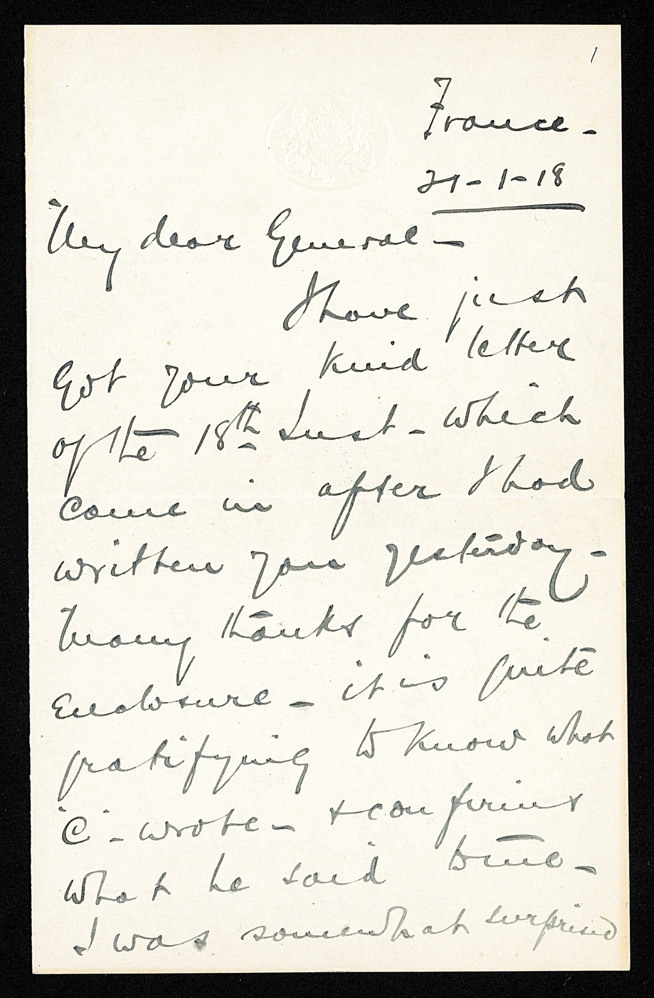 1
France -
21-1-18
My dear General -
I have just
Got your kind letter
of the 18th Inst - which
came in after I had
written you yesterday -
Many thanks for the
Enclosure - it is quite
gratifying to know what
'C' - wrote - & confirms
what he said to me -
I was somewhat surprised